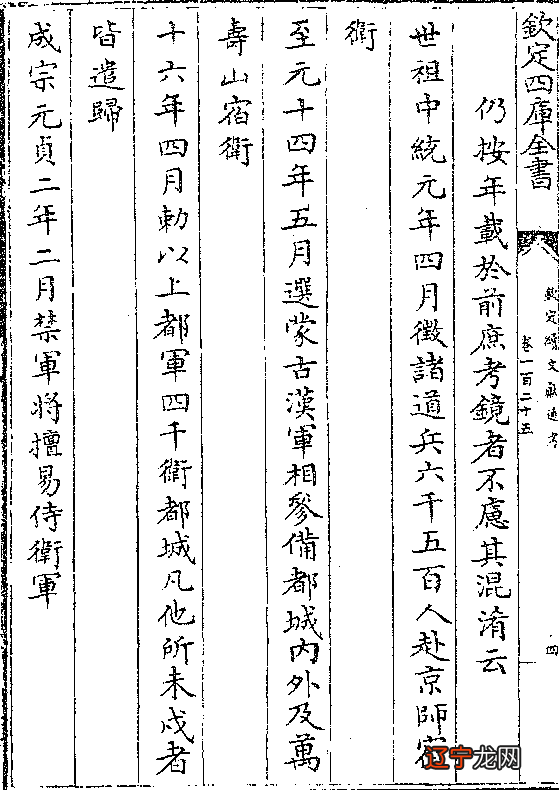 欽定四庫全書
欽定續文獻通考
卷一百二十五
四
仍按年載於前庶考鏡者不慮其混淆云
世祖中統元年四月徵諸道兵六千五百人赴京師宿
衛
至元十四年五月選蒙古漢軍相參備都城內外及萬
壽山宿衛
十六年四月勅以上都軍四千衛都城凡他所来戍者
皆遣歸
成宗元貞二年二月禁軍將擅易侍衛軍
辽宁龙网